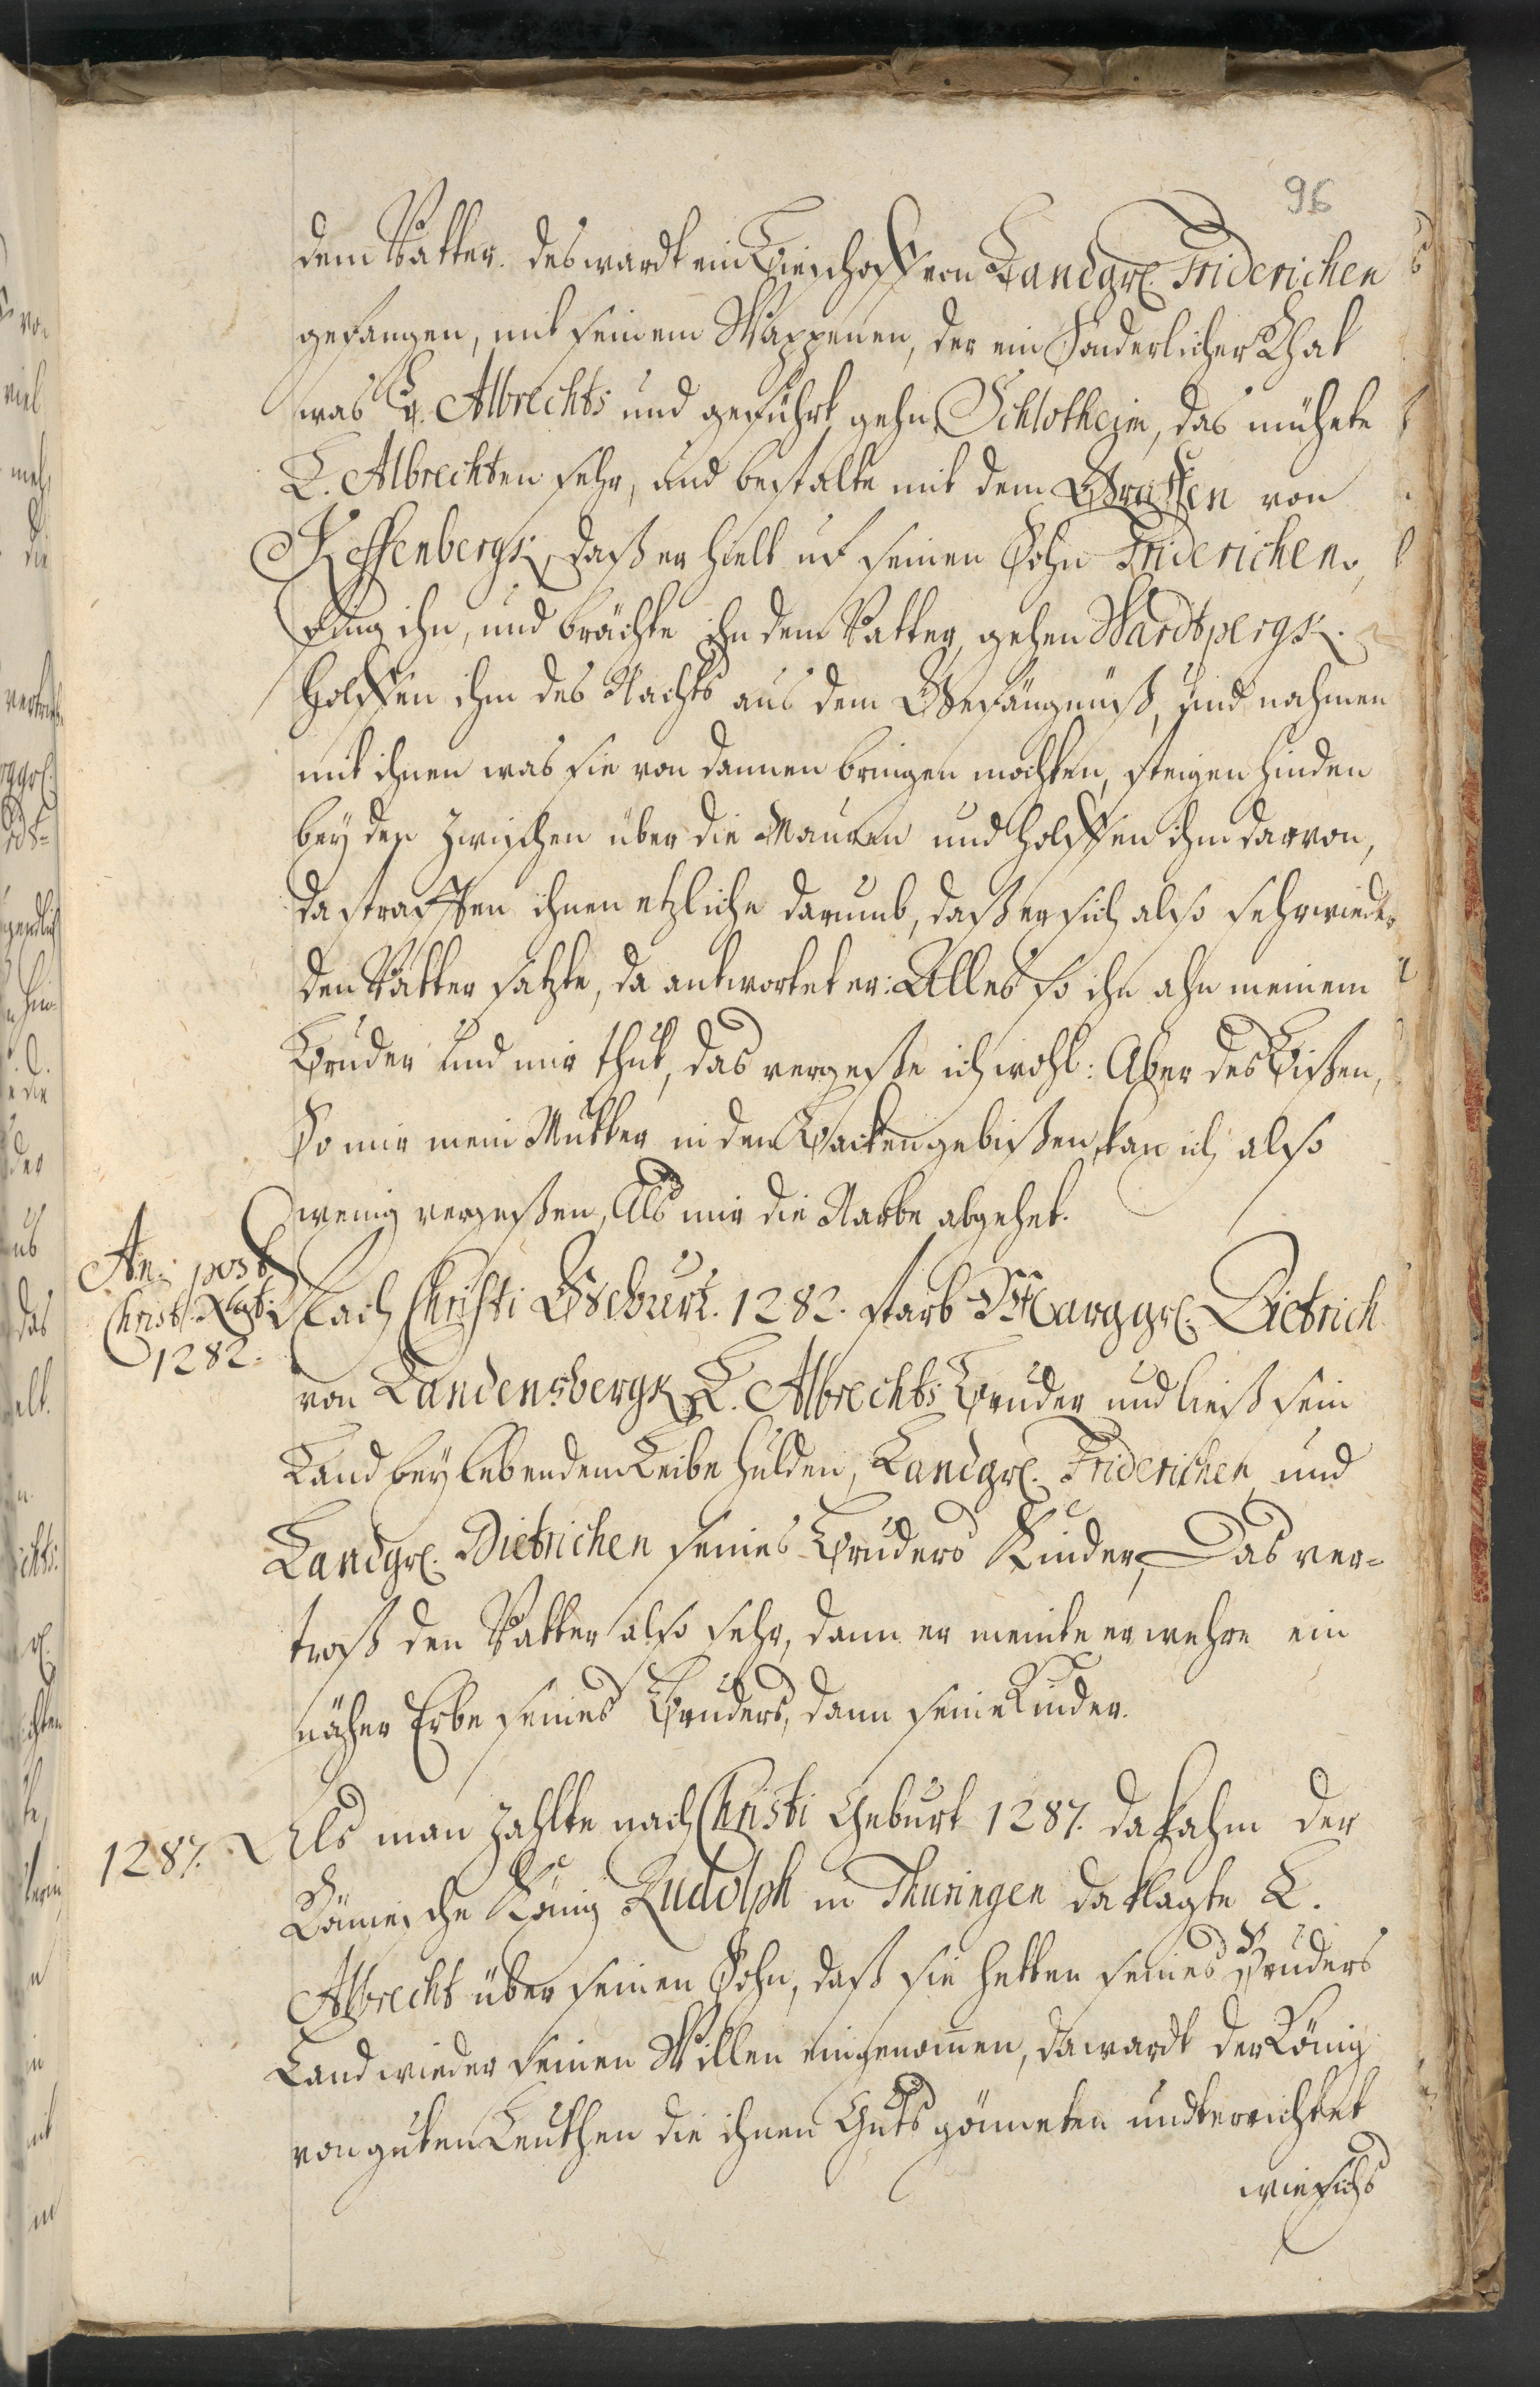 96
dem Vatter. des wardt ein Bischoff von Landgr. Friderichen
gefangen, mit seinem Wappenen, der ein sonderlicher Rhat
was L. Albrechts und geführt gehn Schlotheim, das mühete
L. Albrechten sehr, und bestalte mit dem Graffen von
Keffenbergk, daß er hielt uf seinen Sohn Friderichen,
Fing ihn, und brächte ihn dem Vatter, gehen Wardtpergk.
holffen ihm des Nachts aus dem Gefängnüß, und nahmen
mit ihnen was sie von dannen bringen mochten, steigen hinden
bey der zwischen über die Mauren und holffen ihm darvon,
da strafften ihnen etzliche darumb, daß er sich also sehr wieder
den Vatter satzte, da antwortet er: Alles so ihr ahn meinem
Bruder und mir thut, das vergeße ich wohl: Aber des Bißen,
So mir mein Mutter in den Backen gebißen, kan ich also
wenig vergeßen, Als mir die Narbe abgehet.
An. post
Christ. Nat.
1282.
Nach Christi Geburt. 1282. starb Marggr. Dietrich
von Landensbergk L. Albrechts Bruder und ließ sein
Land bey lebendem Leibe hulden, Landgr. Friderichen und
Landgr. Dietrichen seines Bruders Kinder, Das ver=
troß den Vatter also sehr, dann er meinte er wehre ein
näher Erbe seines Bruders, dann seine Kinder.
1287.
Als man zahlte nach Christi Geburt 1287. da kahm der
Römische König Rudolph in Thuringen da klagte L.
Albrecht über seinen Sohn, daß sie hetten seines Bruders
Land wieder seinen Willen eingenomen, da wardt der König
von guten Leuthen die ihnen Guts gönneten undterrichtet
wie sichs